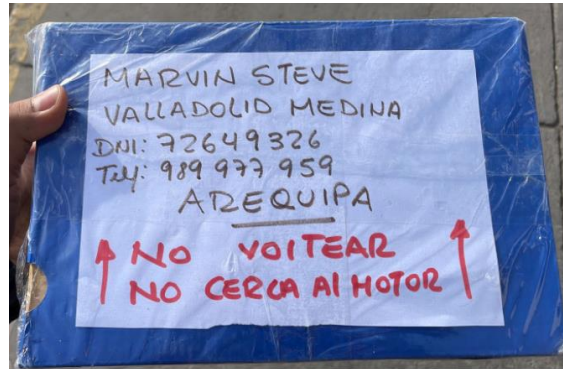 MARVIN STEVE
VALLADOLID MEDINA
DNI: 72649326
Telf: 989 977 959
AREQUIPA
NO VOLTEAR
NO CERCA Al MOTOR